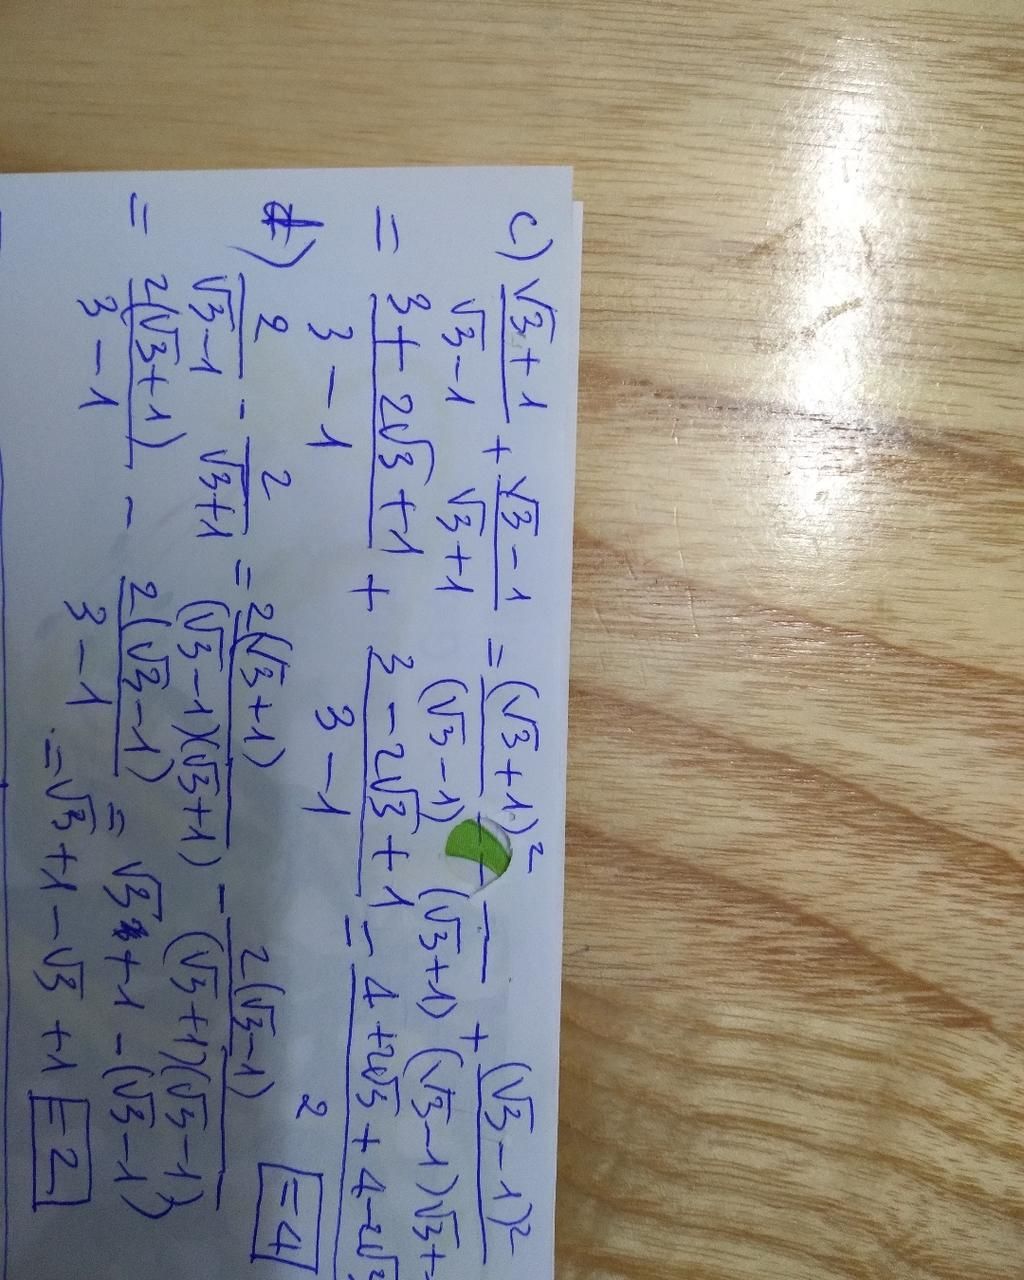 c) (√3+1)/(√3-1) + (√3-1)/(√3+1) = (√3+1)²/((√3-1)(√3+1)) + (√3-1)²/((√3-1)√3+
= (3+2√3+1)/(3-1) + (3-2√3+1)/(3-1) = (4+2√3+4-2√3)/2 =4
d) 2/(√3-1) - 2/(√3+1) = 2(√3+1)/((√3-1)(√3+1)) - 2(√3-1)/((√3+1)(√3-1))
= 2(√3+1)/(3-1) - 2(√3-1)/(3-1) = √3+1-(√3-1)
=√3+1-√3+1 =2